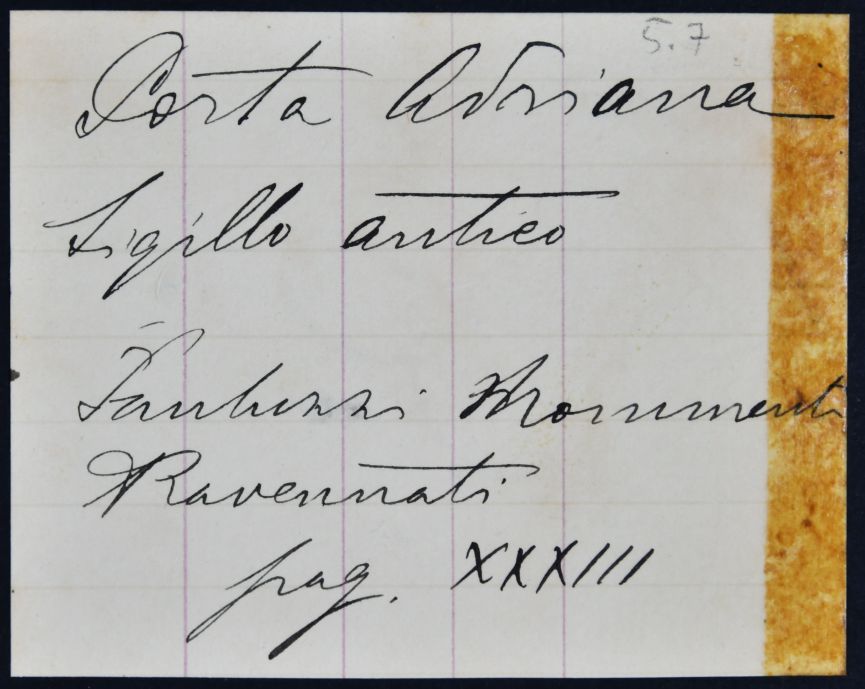 5.7
Porta Adriana
Sigillo antico
Fantuzzi Monumenti
Ravennati
pag. XXXIII